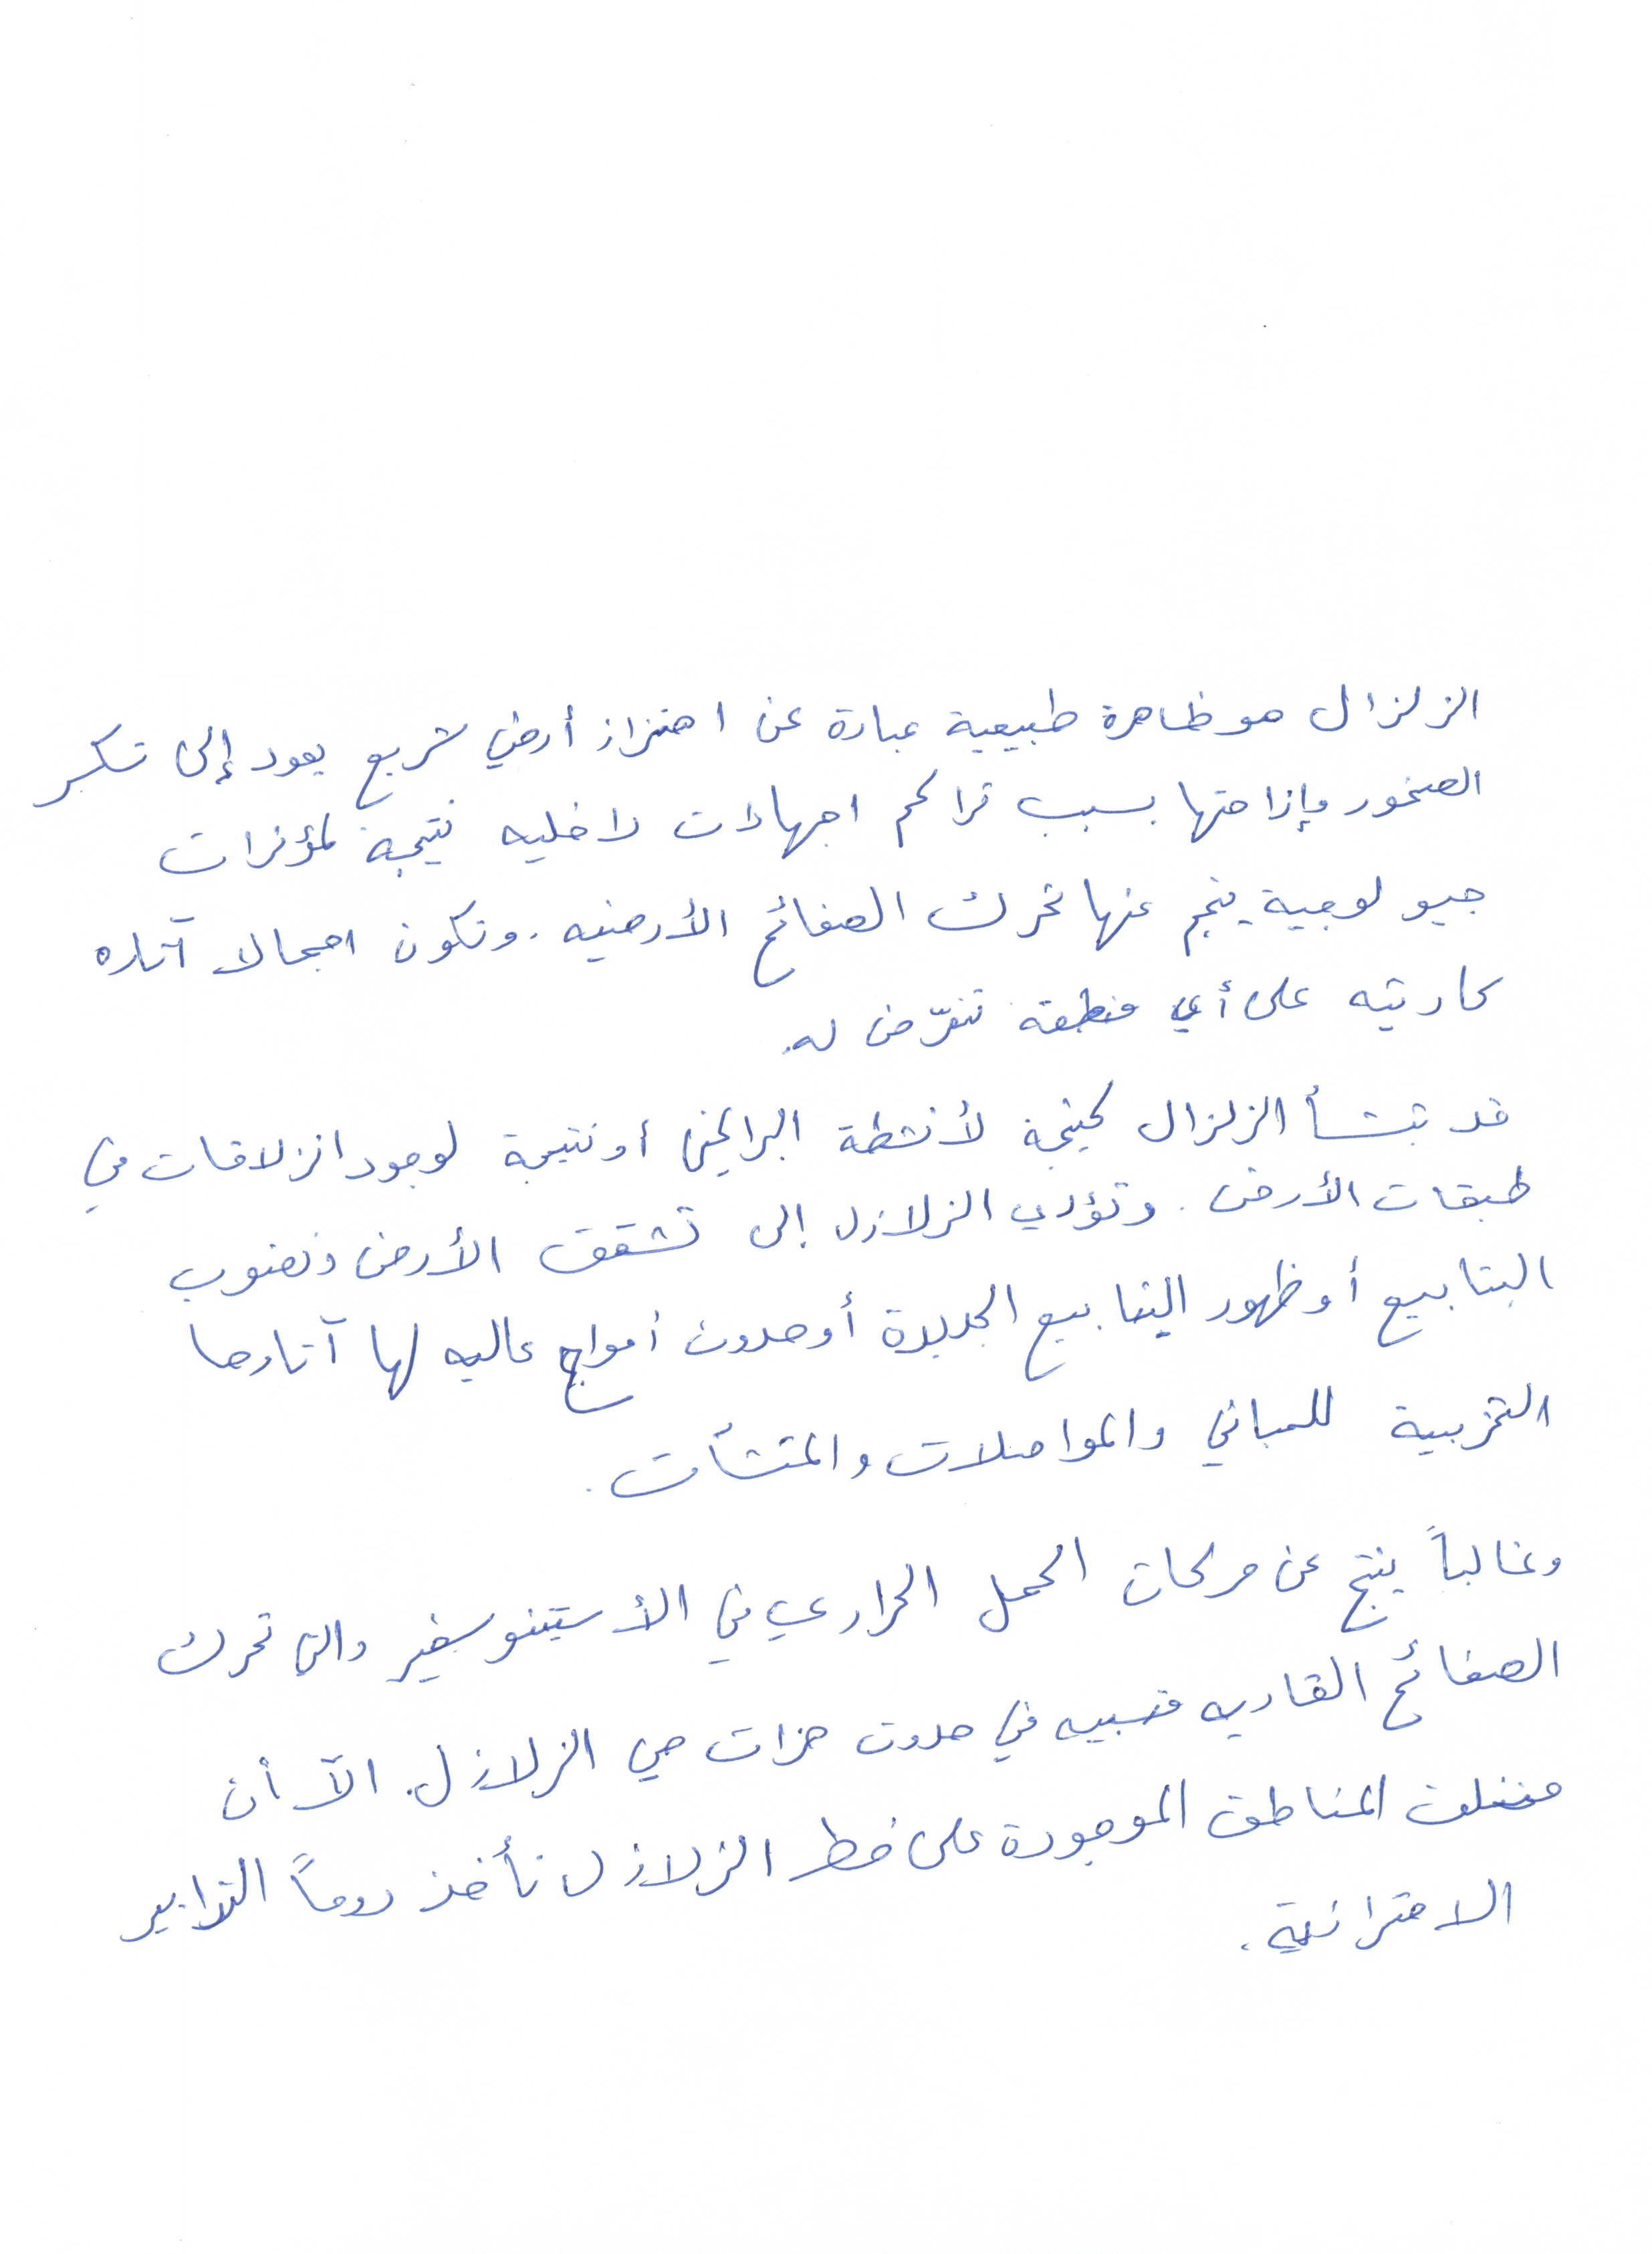 الزلزال هو ظاهرة طبيعية عبارة عن اهتزاز أرضي سريع يعود إلى تكسر
الصخور وإزاحتها بسبب تراكم اجهادات داخليه نتيجة لمؤثرات
جيولوجية ينجم عنها تحرك الصفائح الأرضيه. وتكون اجمالا آثاره
كارثيه على أي منطقة تتعرّض له.
قد تنشأ الزلزال كنتيجة لأنشطة البراكين أو نتيجة لوجود انزلاقات في
طبقات الأرض. وتؤدي الزلازل إلى تشقق الأرض ونضوب
الينابيع أو ظهور الينابيع الجديدة أو حدوث أمواج عاليه لها آثارها
التخريبية للمباني والمواصلات والمنشآت.
وغالباً ينتج عن حركات الحمل الحراري في الأستينوسفير والتي تحرك
الصفائح القاريه متسببه في حدوث هزات هي الزلازل. الآ أن
مختلف المناطق الموجودة على خط الزلازل تأخذ دوماً التدابير
الاحترازية.